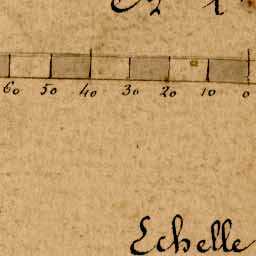 60 50 40 30 20 10 0
Echelle